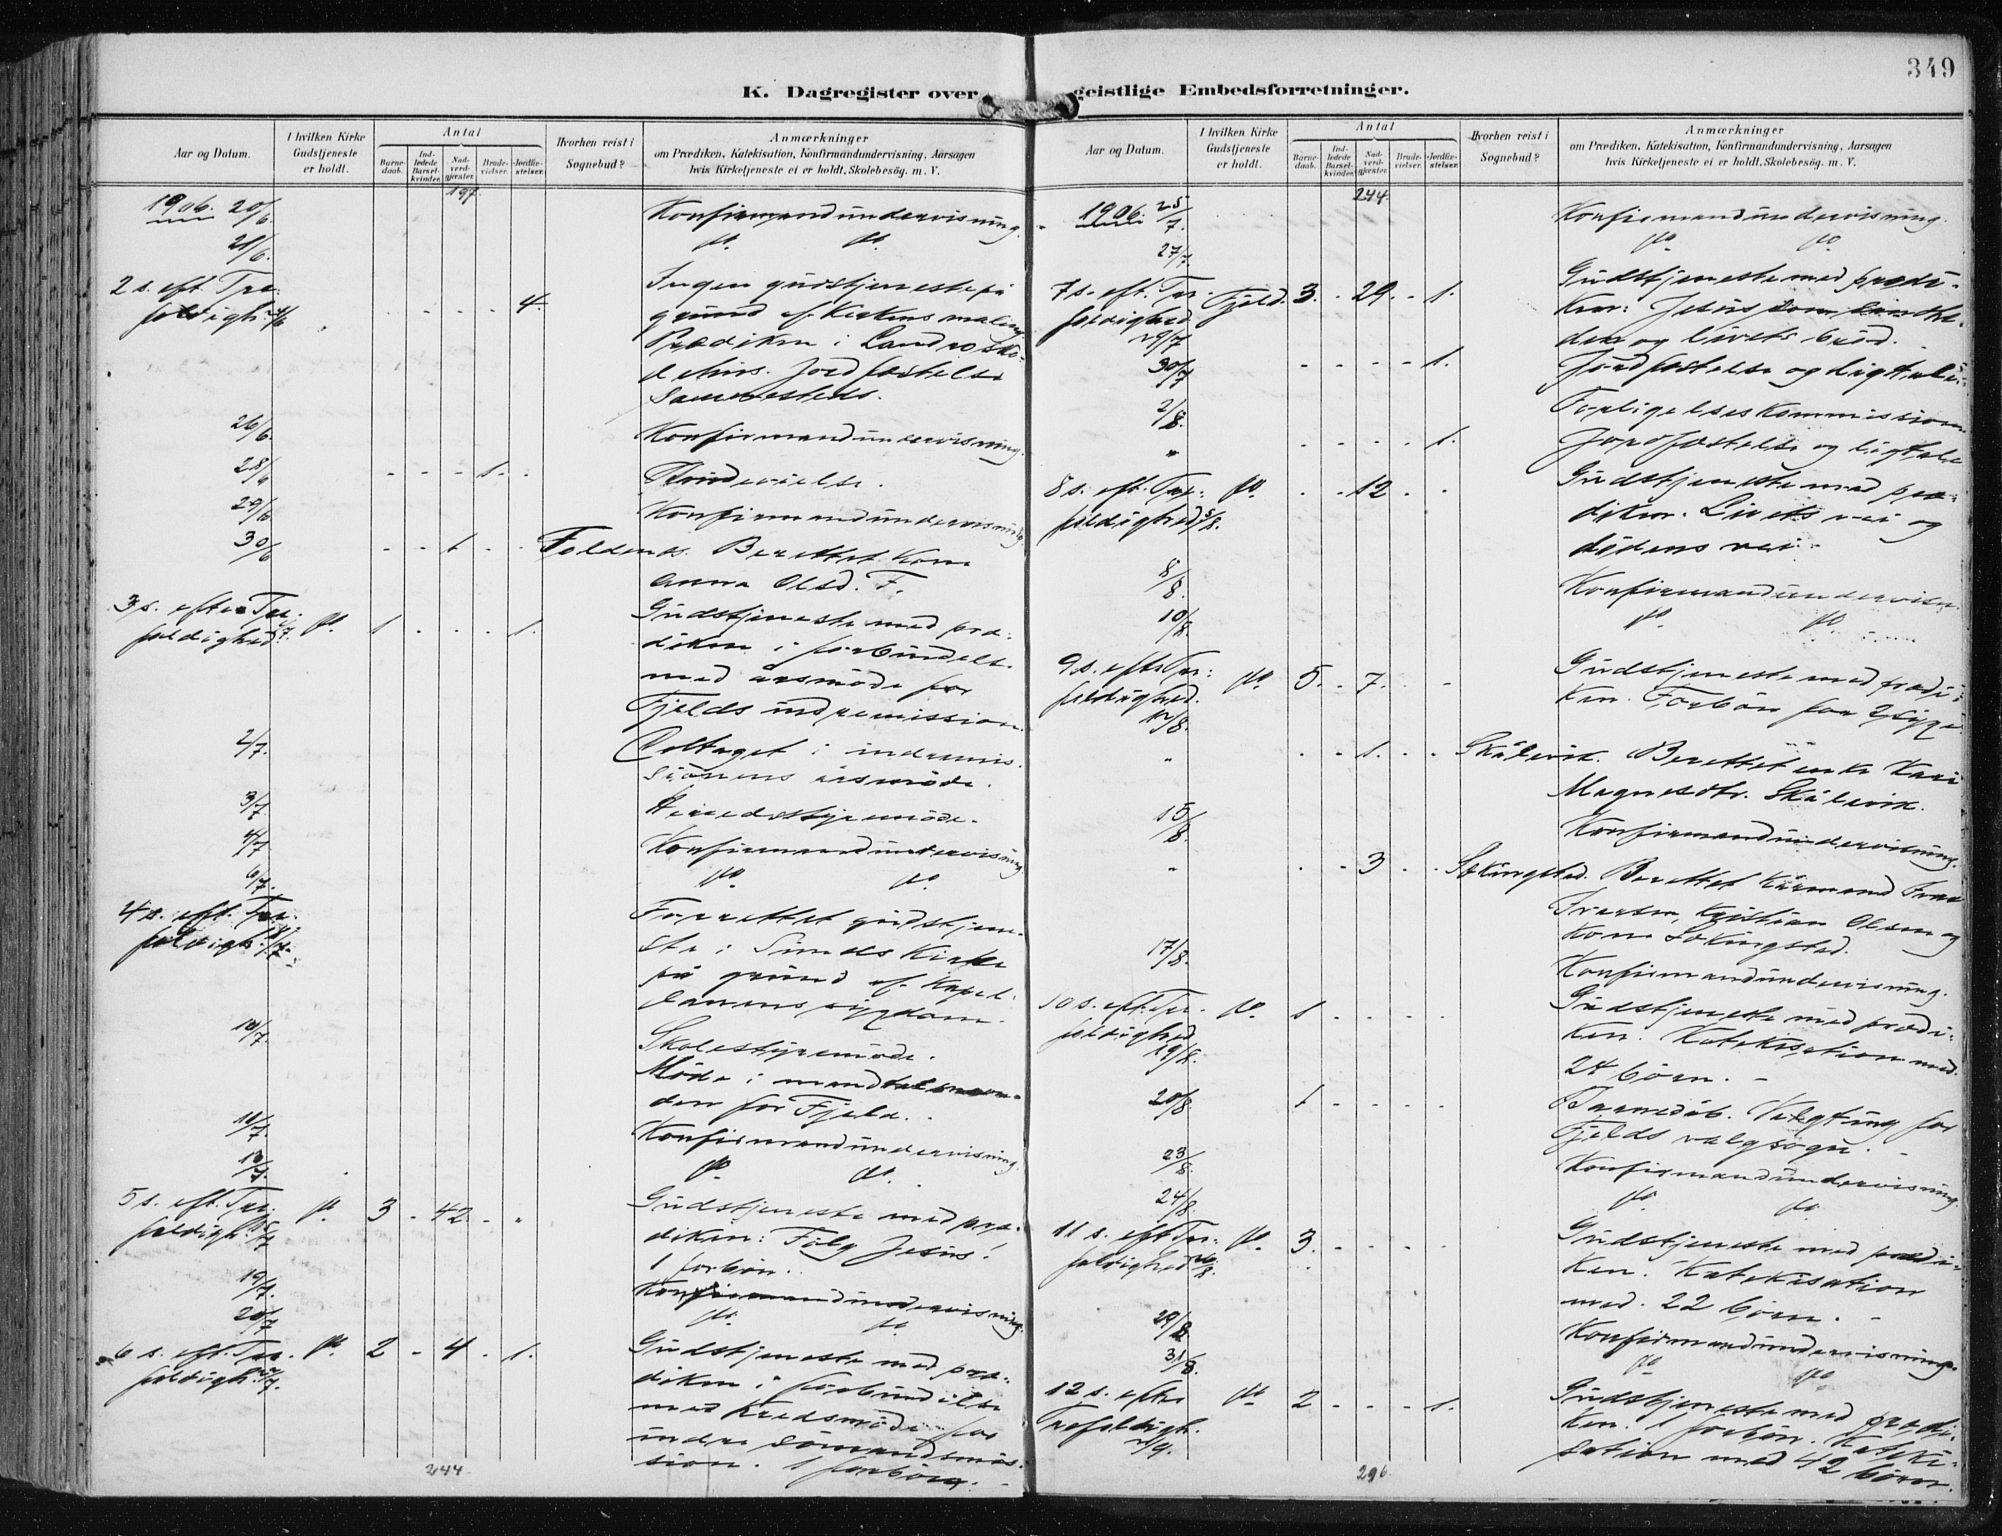 349
K. Dagregister over geistlige Embedsforretninger.
Aar og Datum.
I hvilken Kirke Gudstjeneste er holdt.
Antal
Barnedaab.
Indledede Barselkvinder.
Nadverdgjester.
Brudevielser.
Jordfæstelser.
Hvorhen reist i Sognebud?
Anmærkninger
om Prædiken, Katekisation, Konfirmandundervisning, Aarsagen
hvis Kirketjeneste ei er holdt, Skolebesög. m. V.
197.
1906. 20/6. Konfirmandundervisning.
21/6. do. do.
2 s. eft. Tre- Ingen gudstjeneste på
foldigh. 4. grund af Kirkens maling.
Prædiken i Landro sko-
lehus. Jordfæstelse
sammesteds.
26/6. Konfirmandundervisning.
28/6 1. Brudevielse.
29/6 Konfirmandundervisning
30/6 1 Foldenes. Berettet Kone
Anna Olsd. F.
3 s. efter Tre- do. 1 1. Gudstjeneste med præ-
foldighed diken i forbindelse
med årsmöde for
Fjelds indremission.
2/7. Deltaget i indremis-
sionens årsmöde.
3/7. Herredsstyremöde.
4/7 Konfirmandundervisning
6/7. do. do.
4 s. eft. Tre- Forrettet gudstjene-
foldigh. 8/7. ste i Sunds Kirke
på grund af Kapel-
lanens sygdom.
10/7. Skolestyremöde.
Möde i mandtalsnævn-
den for Fjeld.
Konfirmandundervisning
13/7. do. do.
5 s. eft. Tre- do. 3 42 Gudstjeneste med præ-
foldigh. diken: Fölg Jesus!
1 forbön.
19/7. Konfirmandundervisning.
20/7 do. do.
6 s. eft. Tre- do 2 4 1. Gudstjeneste med præ-
foldigh. diken i forbindelse
med Kredsmöde for
indre sömandsmis-
sion. 1 forbön.
244.
Aar og Datum.
I hvilken Kirke Gudstjeneste er holdt.
Antal
Barnedaab.
Indledede Barselkvinder.
Nadverdgjester.
Brudevielser.
Jordfæstelser.
Hvorhen reist i Sognebud?
Anmærkninger
om Prædiken, Katekisation, Konfirmandundervisning, Aarsagen
hvis Kirketjeneste ei er holdt, Skolebesög. m. V.
244.
1906. 25/7. Konfirmandundervisning.
27/7. do. do.
7 s. eft. Tre- Fjeld. 3. 29. 1. Gudstjeneste med prædi-
foldighed ken: Jesus som
29/7 den og livets bröd.
30/7 1. Jordfæstelse og ligtale
2/8. Forligelseskommission
" 1. Jordfæstelse og ligtale
8 s. eft. Tre- do. 12 Gudstjeneste med præ-
foldighed 5/8. diken. Livets vei og
dödens vei.
8/8. Konfirmandundervisn.
10/8. do. do.
9 s. eft. Tre- do. 5. 7. Gudstjeneste med prædi-
foldighed. ken. Forbön for 2 syge.
12/8.
" 1. Skålevik. Berettet enke Kari
Magnesdtr. Skålevik.
15/8. Konfirmandundervisning.
" 3 Sekingstad. Berettet
Iversen Kristian Olsen og
Kone Sekingstad.
17/8. Konfirmandundervisning.
10 s. eft. Tre- do. 1 Gudstjeneste med prædi-
foldighed ken. Katekisation med
19/8. 24 börn.
20/8. 1 Barnedåb. Valgting for
Fjelds valgsogn.
23/8. Konfirmandundervisning
24/8. do. do.
11 s. eft. Tre- do. 3. Gudstjeneste med prædi-
foldighed 26/8. ken. Katekisation
med 22 börn.
29/8. Konfirmandundervisning.
31/8. do do
12 s. efter do. 2 1. Gudstjeneste med prædi-
Trefoldigh. ken. 1 forbön. Kateki-
2/9. sation med 42 börn.
296.